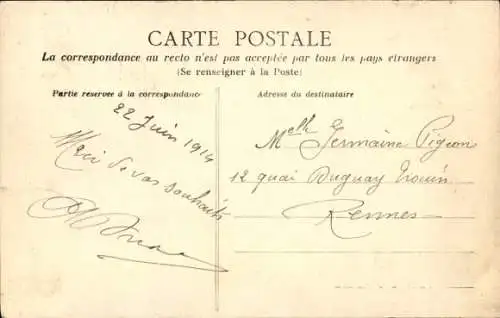 CARTE POSTALE
La correspondance au recto n'est pas acceptée par tous les pays étrangers
(Se renseigner à la Poste)
Partie réservée à la correspondance
Adresse du destinataire
22 Juin 1914
Merci de vos souhaits
Melle Germaine Pigeon
12 quai Duguay Trouin
Rennes